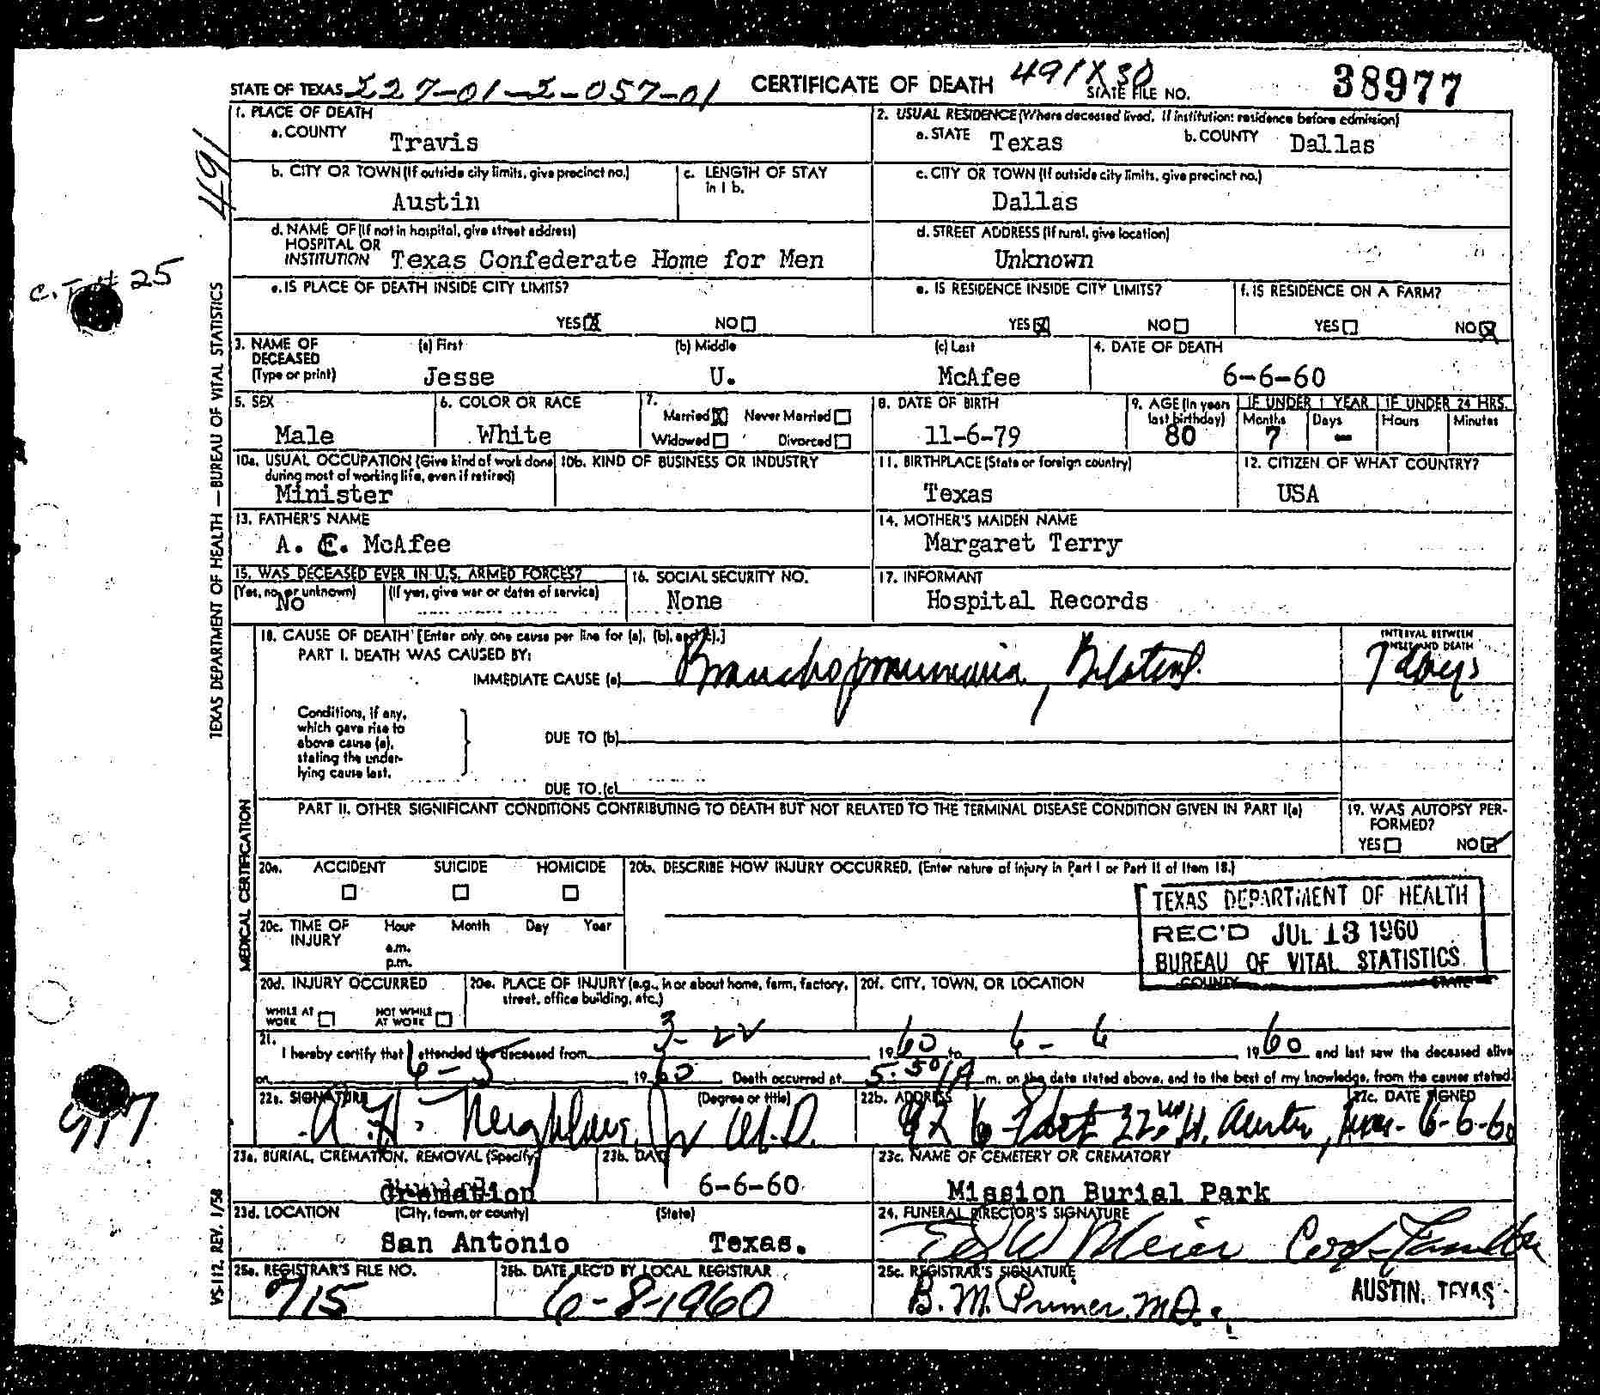 STATE OF TEXAS 227-01-2-057-01 CERTIFICATE OF DEATH 491X30 STATE FILE NO. 38977
491
1. PLACE OF DEATH
a. COUNTY Travis
2. USUAL RESIDENCE (Where deceased lived. If institution: residence before admission)
a. STATE Texas b. COUNTY Dallas
b. CITY OR TOWN (If outside city limits, give precinct no.) Austin
c. LENGTH OF STAY in 1 b.
c. CITY OR TOWN (If outside city limits, give precinct no.) Dallas
d. NAME OF (If not in hospital, give street address) HOSPITAL OR INSTITUTION Texas Confederate Home for Men
d. STREET ADDRESS (If rural, give location) Unknown
25
e. IS PLACE OF DEATH INSIDE CITY LIMITS? YES NO
e. IS RESIDENCE INSIDE CITY LIMITS? YES NO
f. IS RESIDENCE ON A FARM? YES NO
3. NAME OF DECEASED (Type or print) (a) First Jesse (b) Middle U. (c) Last McAfee
4. DATE OF DEATH 6-6-60
5. SEX Male
6. COLOR OR RACE White
7. Married Never Married Widowed Divorced
8. DATE OF BIRTH 11-6-79
9. AGE (In years last birthday) 80 IF UNDER 1 YEAR Months 7 Days - IF UNDER 24 HRS. Hours Minutes
10a. USUAL OCCUPATION (Give kind of work done during most of working life, even if retired) Minister
10b. KIND OF BUSINESS OR INDUSTRY
11. BIRTHPLACE (State or foreign country) Texas
12. CITIZEN OF WHAT COUNTRY? USA
13. FATHER'S NAME A. C. McAfee
14. MOTHER'S MAIDEN NAME Margaret Terry
15. WAS DECEASED EVER IN U.S. ARMED FORCES? (Yes, no, or unknown) No (If yes, give war or dates of service)
16. SOCIAL SECURITY NO. None
17. INFORMANT Hospital Records
18. CAUSE OF DEATH [Enter only one cause per line for (a), (b), and (c).]
PART I. DEATH WAS CAUSED BY:
IMMEDIATE CAUSE (a) Bronchopneumonia, Bilateral
INTERVAL BETWEEN ONSET AND DEATH 7 days
Conditions, if any, which gave rise to above cause (a), stating the underlying cause last.
DUE TO (b)
DUE TO (c)
PART II. OTHER SIGNIFICANT CONDITIONS CONTRIBUTING TO DEATH BUT NOT RELATED TO THE TERMINAL DISEASE CONDITION GIVEN IN PART I(a)
19. WAS AUTOPSY PERFORMED? YES NO
20a. ACCIDENT SUICIDE HOMICIDE
20b. DESCRIBE HOW INJURY OCCURRED. (Enter nature of injury in Part I or Part II of Item 18.)
20c. TIME OF INJURY Hour a.m. p.m. Month Day Year
TEXAS DEPARTMENT OF HEALTH
REC'D JUL 13 1960
BUREAU OF VITAL STATISTICS
20d. INJURY OCCURRED WHILE AT WORK NOT WHILE AT WORK
20e. PLACE OF INJURY (e.g., in or about home, farm, factory, street, office building, etc.)
20f. CITY, TOWN, OR LOCATION COUNTY STATE
21. I hereby certify that I attended the deceased from 3-22 1960 to 6-6 1960 and last saw the deceased alive
on 6-5 1960 Death occurred at 5:50 A m. on the date stated above, and to the best of my knowledge, from the causes stated.
22a. SIGNATURE (Degree or title) A. H. Neighbors, Jr M.D.
22b. ADDRESS Austin,
22c. DATE SIGNED 6-6-60
917
23a. BURIAL, CREMATION, REMOVAL (Specify) Cremation
23b. DATE 6-6-60
23c. NAME OF CEMETERY OR CREMATORY Mission Burial Park
23d. LOCATION (City, town, or county) San Antonio (State) Texas.
24. FUNERAL DIRECTOR'S SIGNATURE
25a. REGISTRAR'S FILE NO. 715
25b. DATE REC'D BY LOCAL REGISTRAR 6-8-1960
25c. REGISTRAR'S SIGNATURE B. M. Primer, M.D.
AUSTIN, TEXAS
TEXAS DEPARTMENT OF HEALTH — BUREAU OF VITAL STATISTICS
MEDICAL CERTIFICATION
VS-112, REV. 1/58